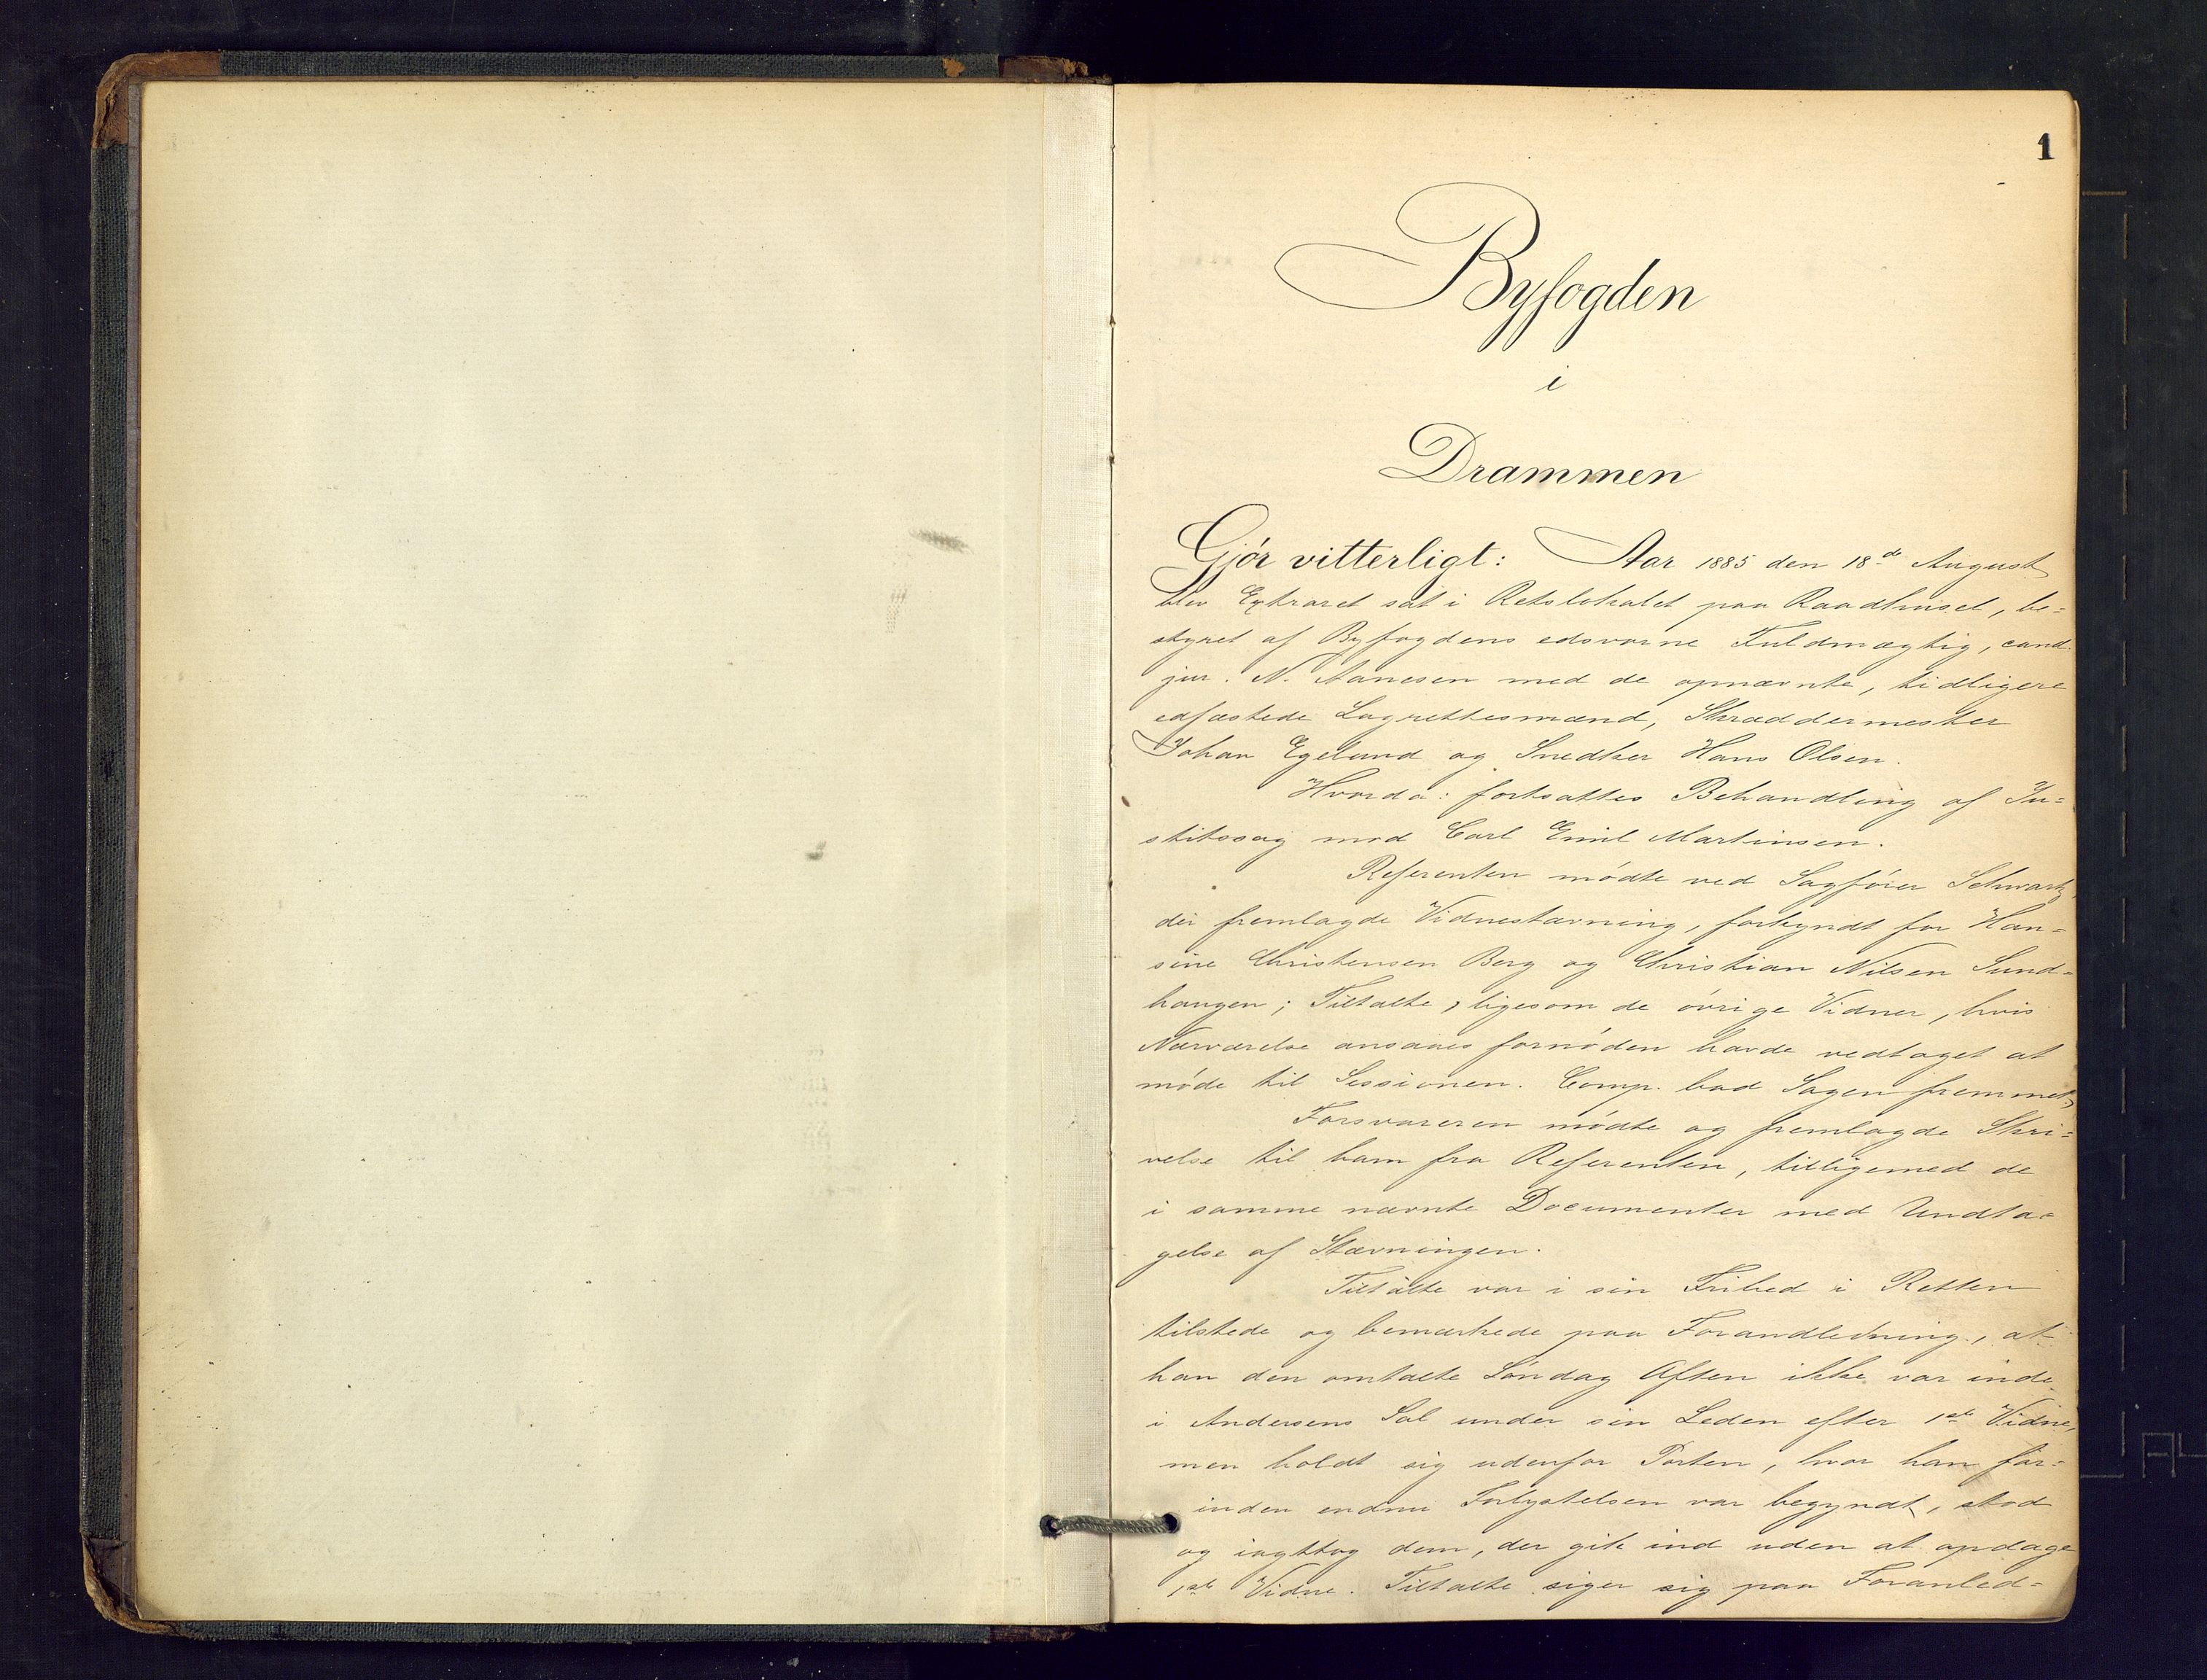 1
Byfogden
i
Drammen
Gjör vitterligt: Aar 1885 den 18de August
blev Extraret sat i Retslokalet paa Raadhuset, be=
styret af Byfogdens edsvorne Fuldmægtig, cand.
jur. N. Aanesen med de opnævnte, tidligere
edfæstede Lagrettesmænd, Skræddermester
Johan Egelund og Snedker Hans Olsen.
Hvorda: fortsattes Behandling af Ju=
stitssag mod Carl Emil Martinsen.
Referenten mödte ved Sagförer Schwartz,
der fremlagde Vidnestævning, forkyndt for Han=
sine Christensen Berg og Christian Nilsen Sund=
haugen; Tiltalte, ligesom de övrige Vidner, hvis
Nærværelse ansaaes fornöden havde vedtaget at
möde til Sessionen. Comp. bad Sagen fremmet,
Forsvareren mödte og fremlagde Skri=
velse til ham fra Referenten, tilligemed de
i samme nævnte Documenter med Undta=
gelse af Stævningen.
Tiltalte var i sin Frihed i Retten
tilstede og bemærkede paa Forandledning, at
han den omtalte Söndag Aften ikke var inde
i Andersens Sal under sin Leden efter 1ste Vidne,
men holdt sig udenfor Porten, hvor han för=
inden endnu Forlystelsen var begyndt, stod
og iagttog dem, der gik ind uden at opdage
1ste Vidne. Tiltalte siger sig paa Foranled=